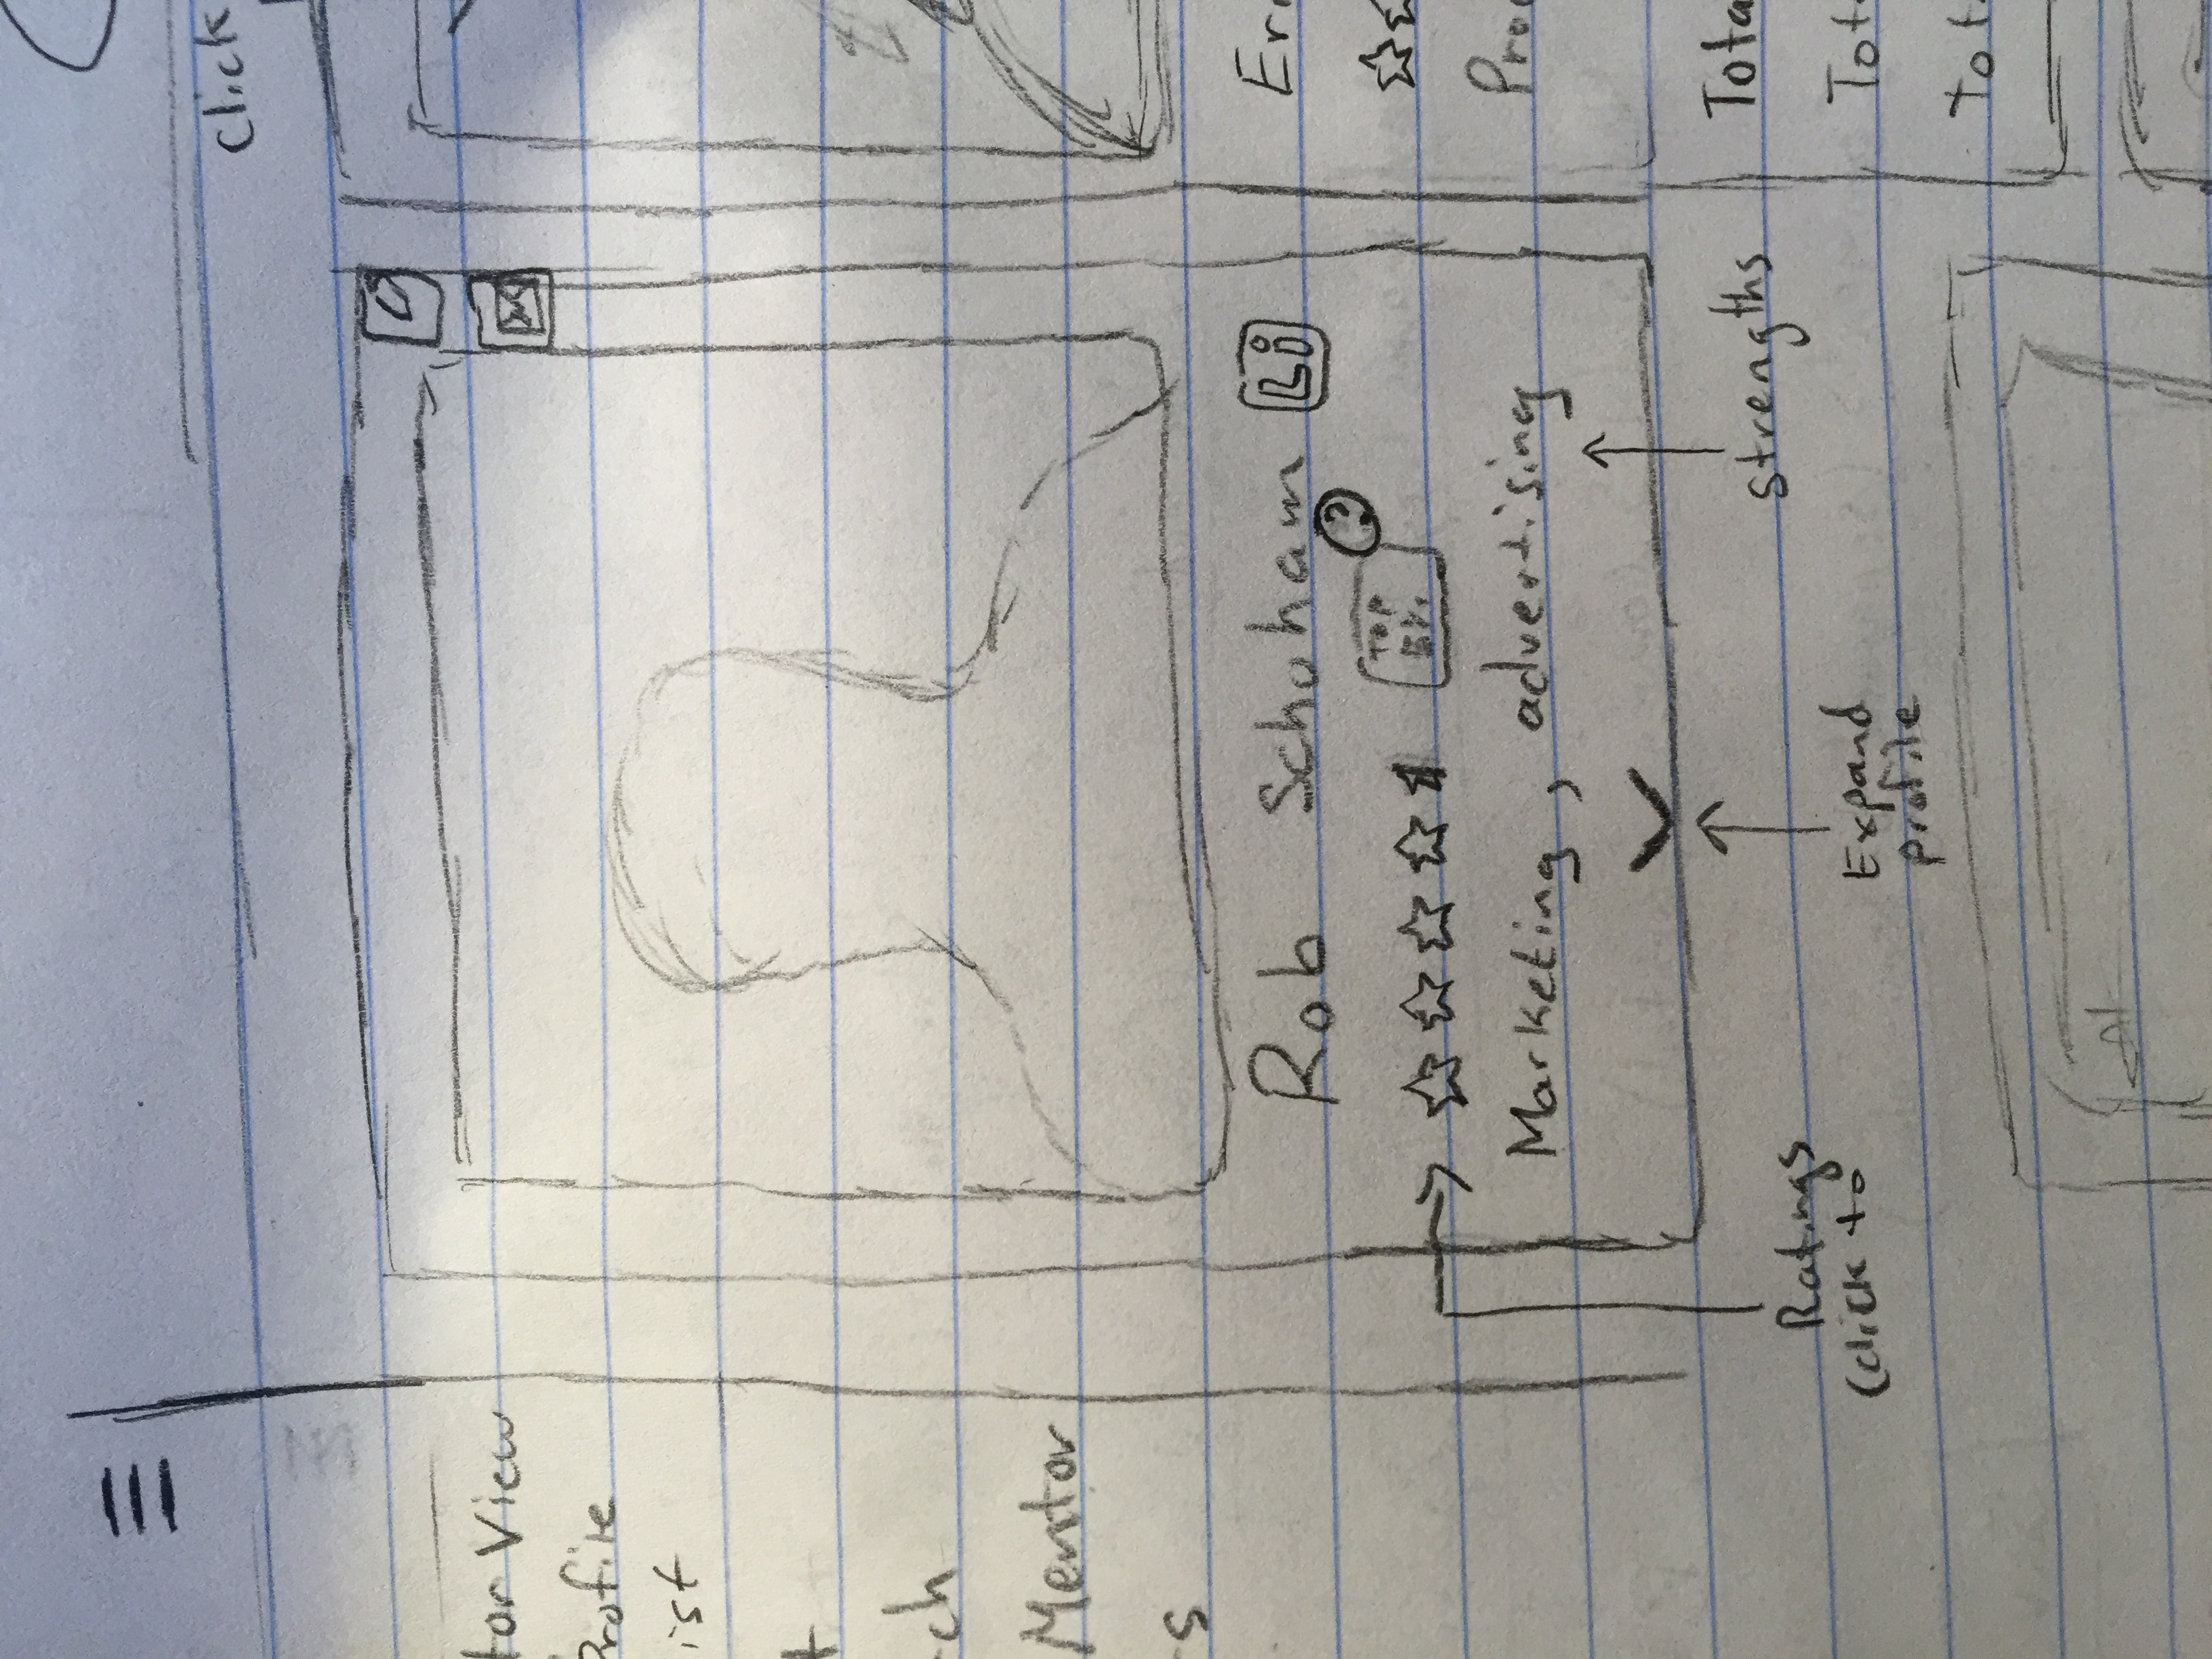 Click
tor View
Profile
ist
t
ch
Mentor
s
Rob Schoham Li
?
TOP
Marketing, advertising
strengths
Ratings
(click to
Expand
profile
Er
Pro
Tota
Tot
Tot